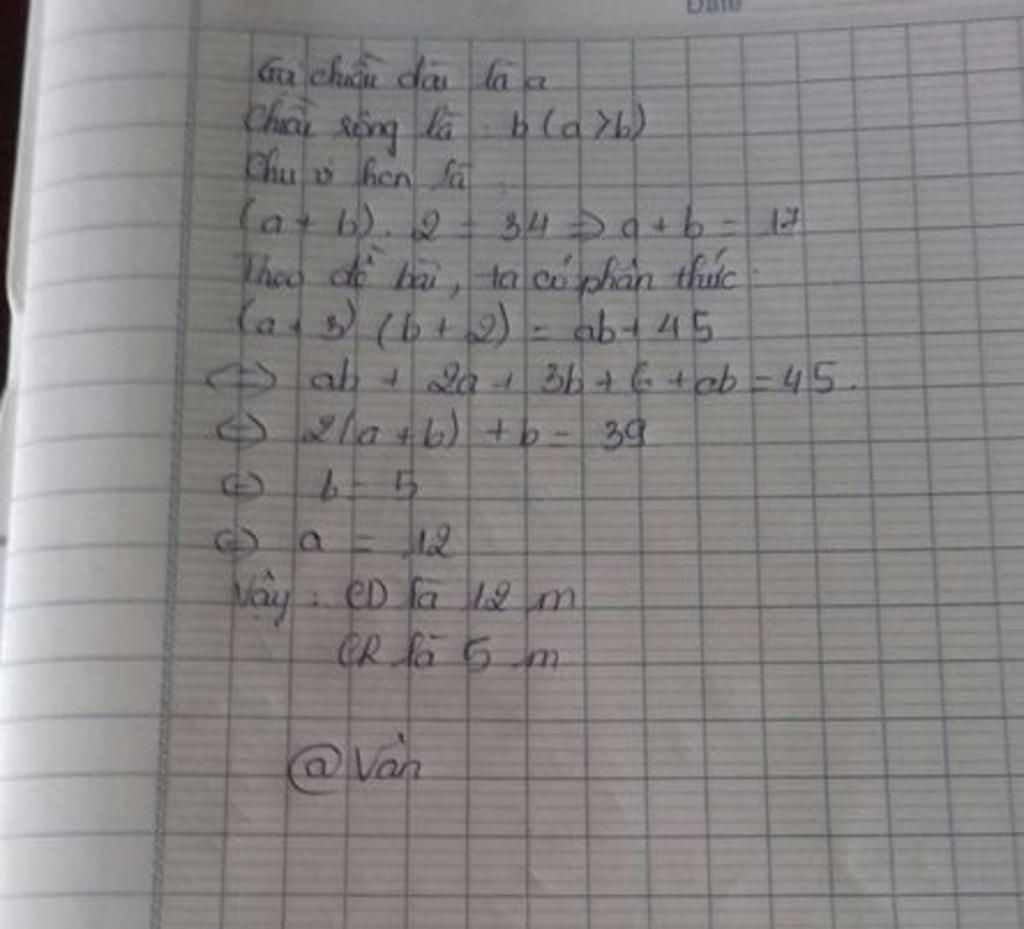 Date
Gọi chiều dài là a
Chiều rộng là b (a > b)
Chu vi hcn là
(a + b). 2 = 34 => a + b = 17
Theo đề bài, ta có phân thức:
(a + 3) (b + 2) = ab + 45
<=> ab + 2a + 3b + 6 + ab = 45.
<=> 2(a + b) + b = 39
<=> b = 5
<=> a = 12
Vậy : CD là 12 m
CR là 5 m
@ Vân